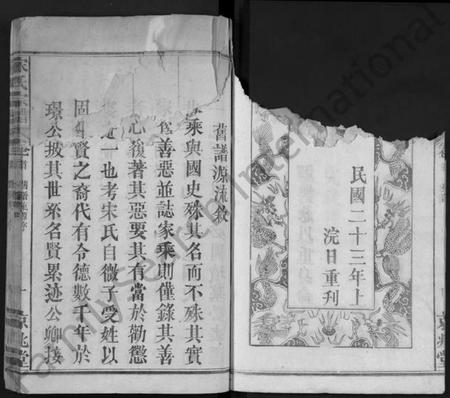 民國二十三年上
浣日重刋
舊譜源流敘
乘與國史殊其名而不殊其實
爲善惡並誌家乘則僅錄其善
心複著其惡要其有當於勸懲
一也考宋氏自微子受姓以
固賢之裔代有令德數千年於
環公披其世系名賢累迹公卿接
宋氏
京兆堂
京兆堂
FamilySearch International